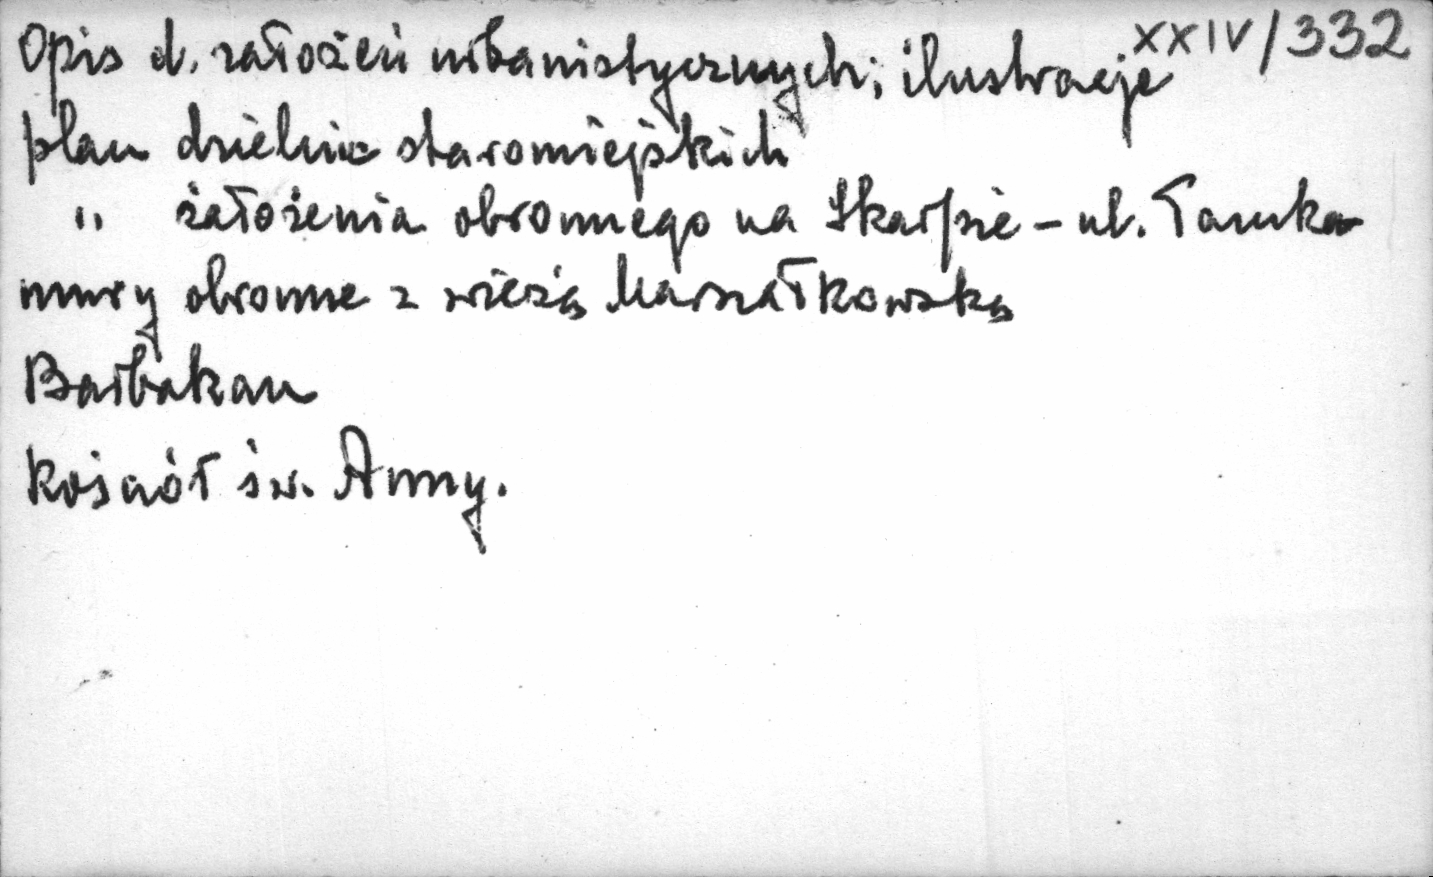 XXIV/332
Opis d. założeń urbanistycznych; ilustracje
plan dzielnic staromiejskich
" założenia obronnego na Skarpie - ul. Tamka
mury obronne z wieżą Marszałkowską
Barbakan
Kościół św. Anny.